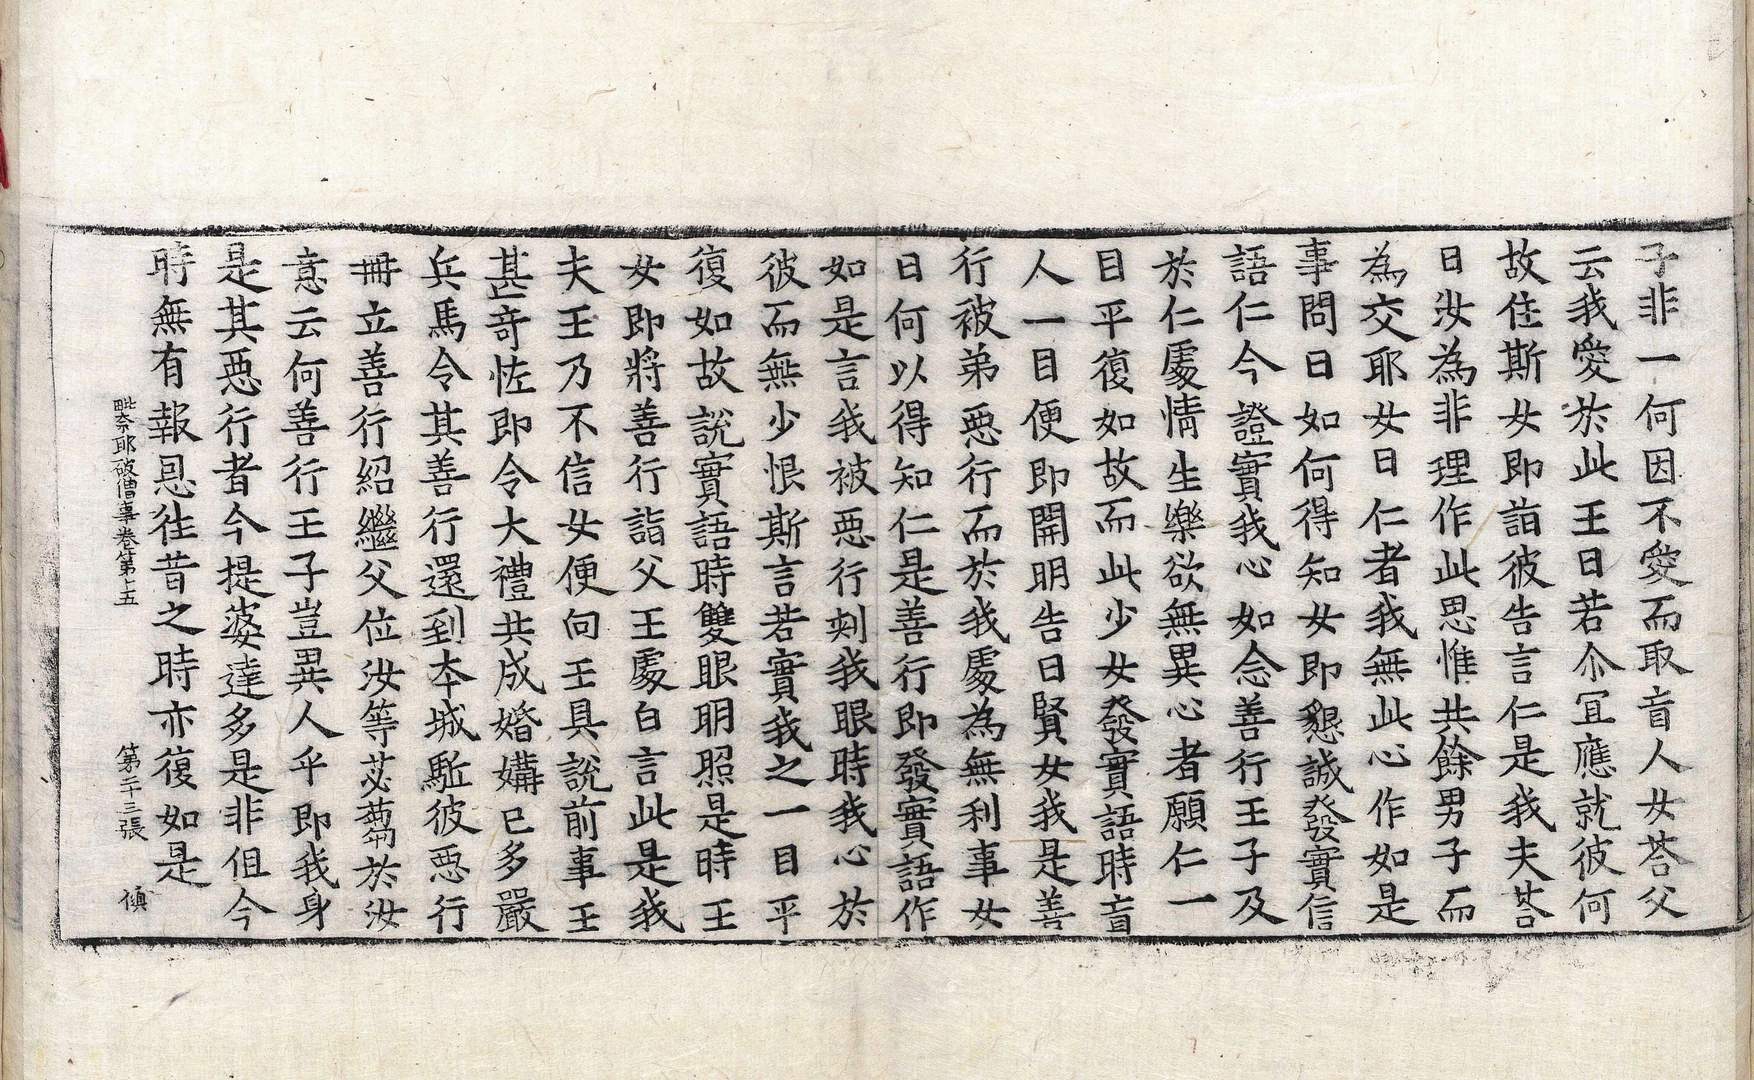 子非一何因不愛而取盲人女荅父
云我愛於此王曰若尒宜應就彼何
故住斯女即詣彼告言仁是我夫荅
曰汝為非理作此思惟共餘男子而
為交耶女曰仁者我無此心作如是
事問曰如何得知女即懇誠發實信
語仁今證實我心如念善行王子及
於仁處情生樂欲無異心者願仁一
目平復如故而此少女發實語時盲
人一目便即開明告曰賢女我是善
行被弟惡行而於我處為無利事女
曰何以得知仁是善行即發實語作
如是言我被惡行剜我眼時我心於
彼而無少恨斯言若實我之一目平
復如故說實語時雙眼明照是時王
女即將善行詣父王處白言此是我
夫王乃不信女便向王具說前事王
甚奇恠即令大禮共成婚媾已多嚴
兵馬令其善行還到本城駈彼惡行
冊立善行紹繼父位汝等苾蒭於汝
意云何善行王子豈異人乎即我身
是其惡行者今提婆達多是非但今
時無有報恩往昔之時亦復如是
毗奈耶破僧事卷第十五 第二十三張 傾